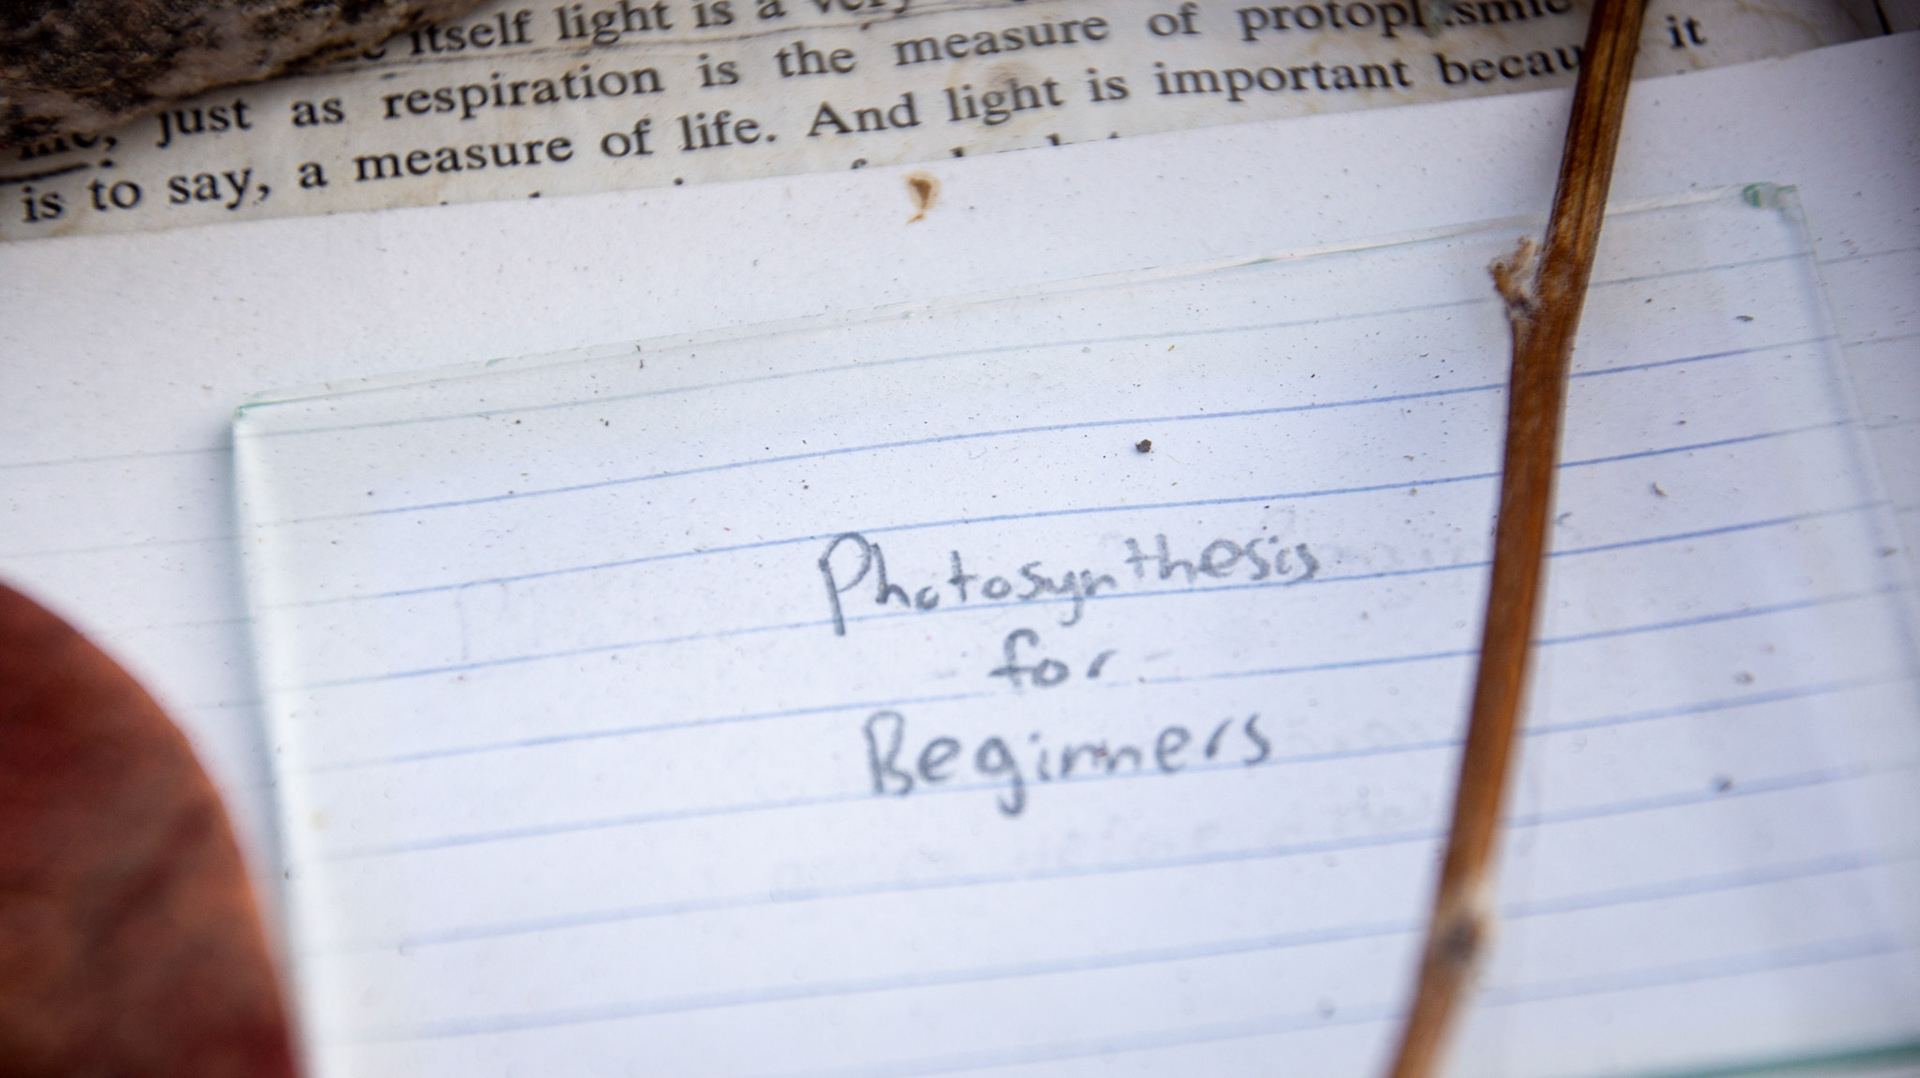 itself light is a very
just as respiration is the measure of
is to say, a measure of life. And light is important because it
Photosynthesis
for
Beginners